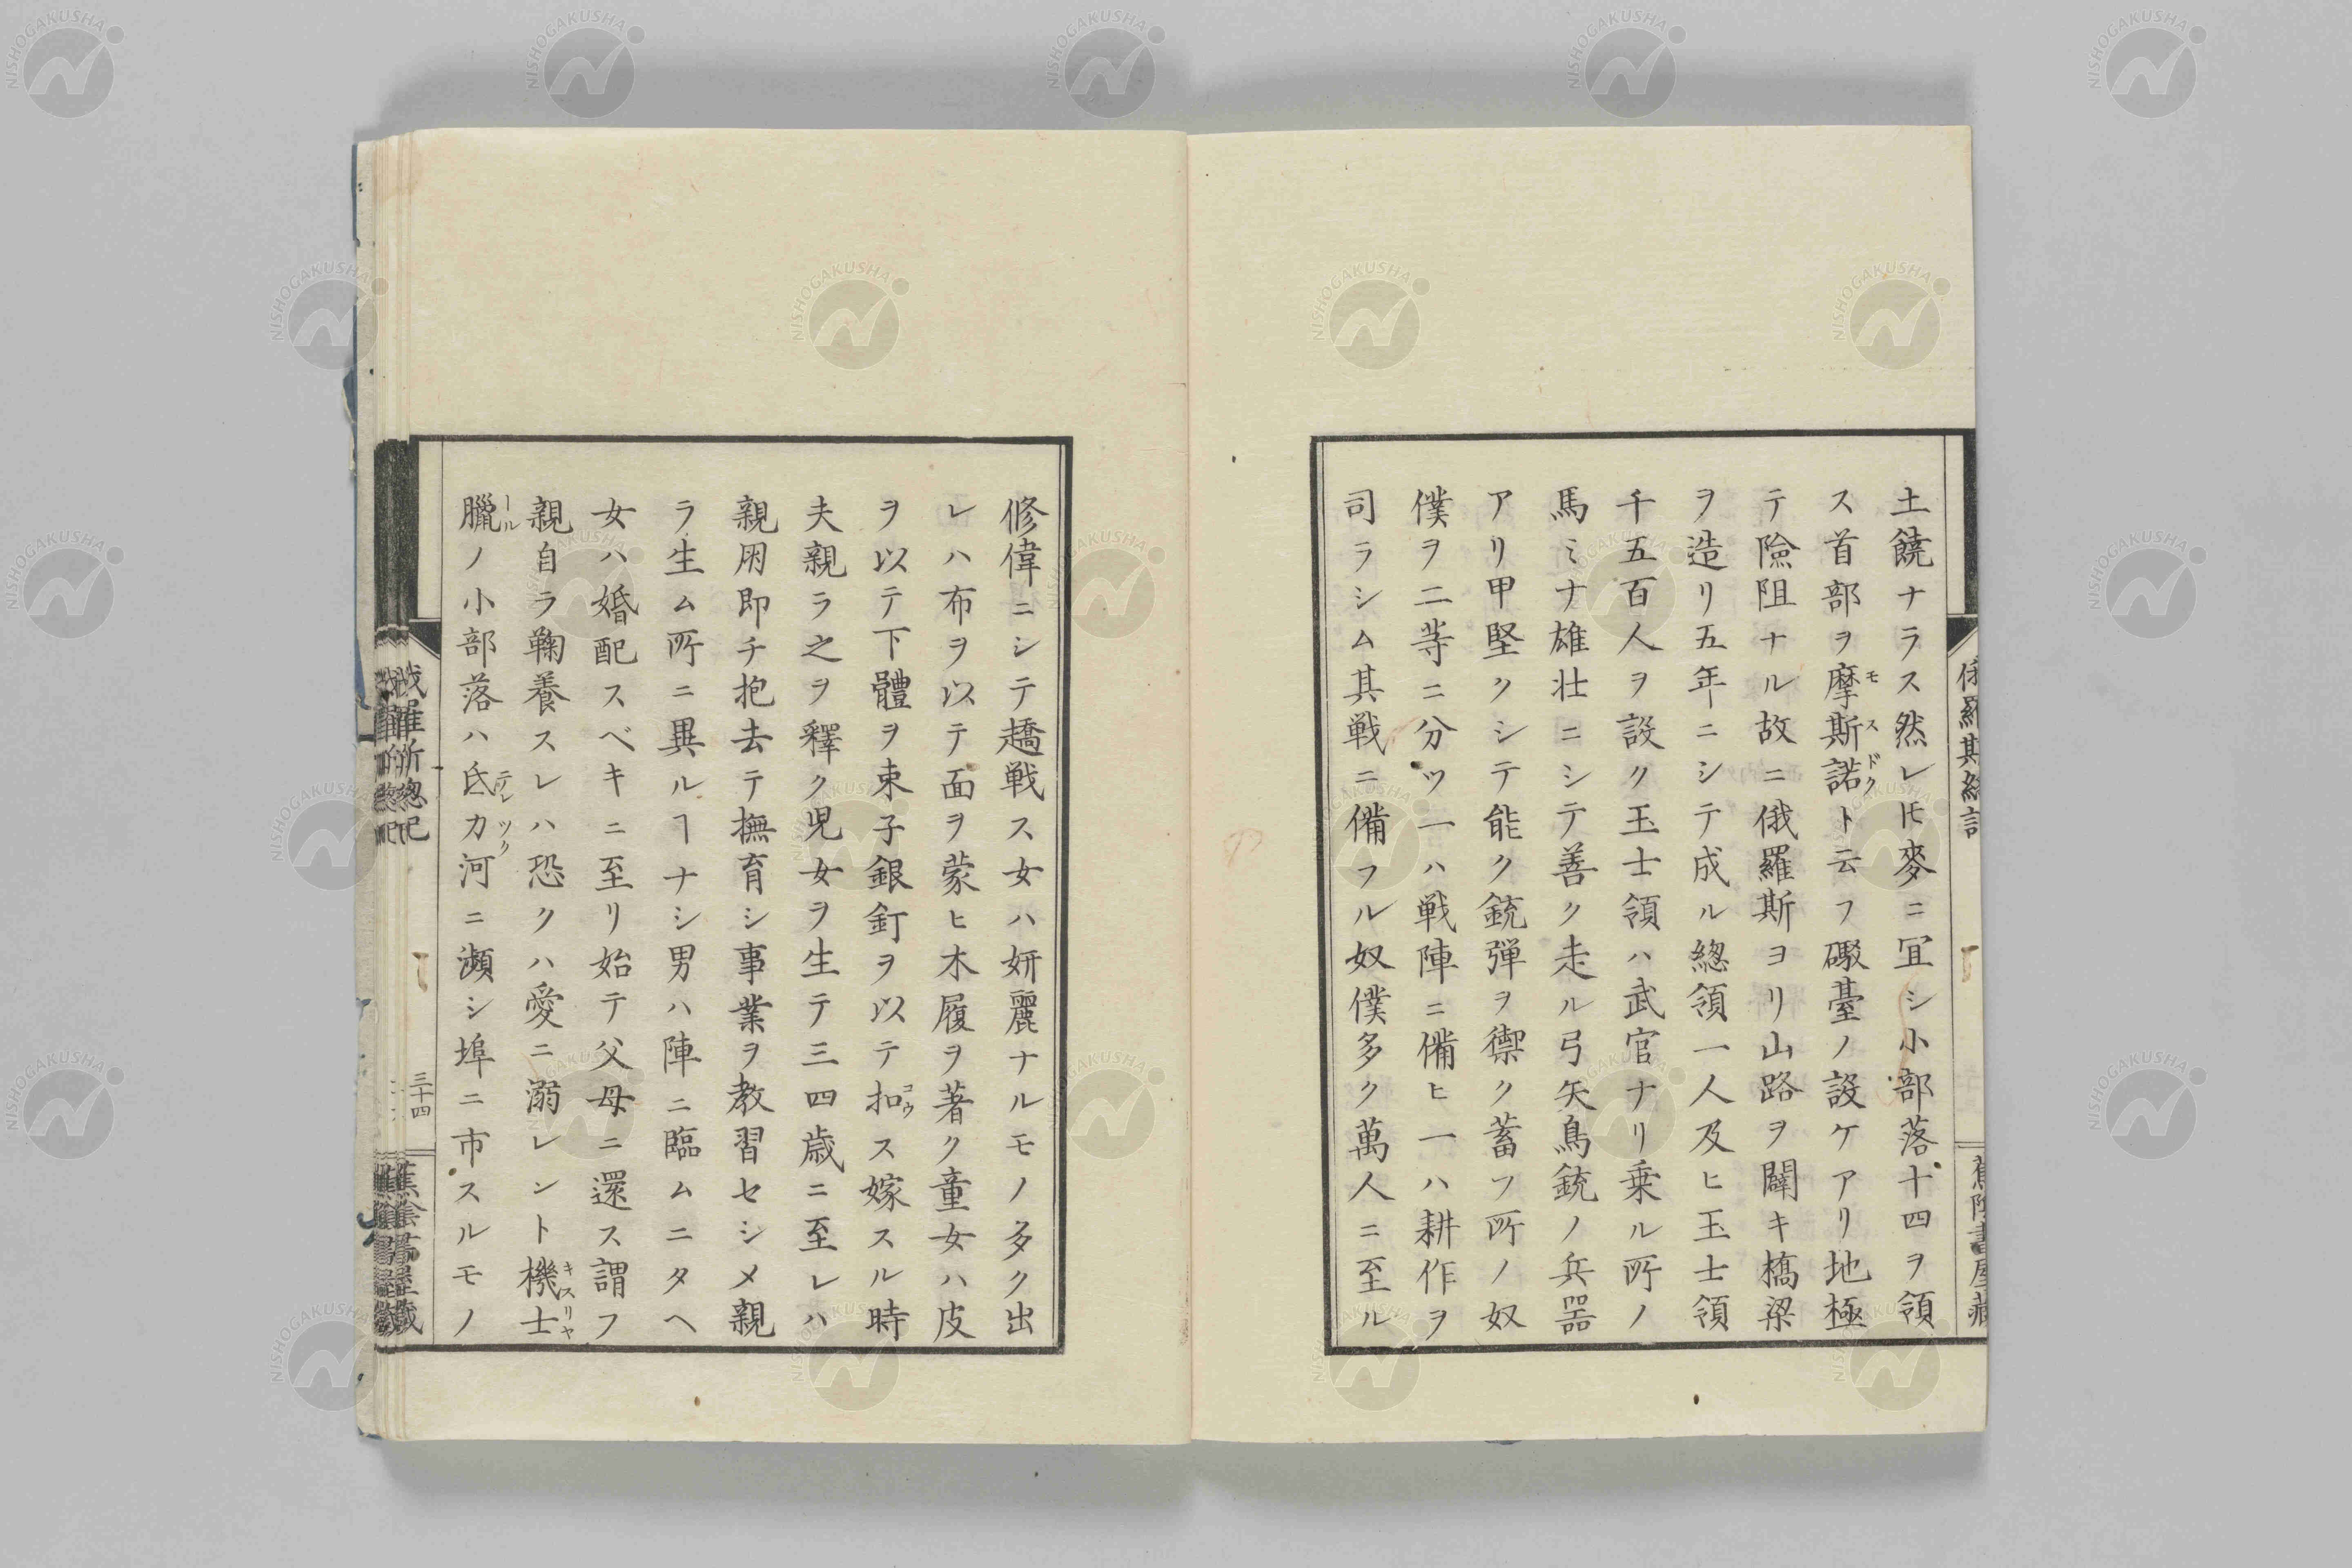 俄羅斯總記
蕉陰書屋藏
土饒ナラス然レ𪜈麥ニ冝シ小部落十四ヲ領
ス首部ヲ摩斯諾ト云フ礮臺ノ設ケアリ地極
モスドク
テ險阻ナル故ニ俄羅斯ヨリ山路ヲ闢キ橋梁
ヲ造リ五年ニシテ成ル總領一人及ヒ玉士領
千五百人ヲ設ク玉士領ハ武官ナリ乗ル所ノ
馬ミナ雄壮ニシテ善ク走ル弓矢鳥銃ノ兵器
アリ甲堅クシテ能ク銃弾ヲ禦ク蓄フ所ノ奴
僕ヲ二等ニ分ツ一ハ戦陣ニ備ヒ一ハ耕作ヲ
司ラシム其戦ニ備フル奴僕多ク萬人ニ至ル
修偉ニシテ趫戦ス女ハ妍麗ナルモノ多ク出
レハ布ヲ以テ面ヲ蒙ヒ木履ヲ著ク童女ハ皮
ヲ以テ下體ヲ束子銀釘ヲ以テ扣ス嫁スル時
コウ
夫親ラ之ヲ釋ク児女ヲ生テ三四歳ニ至レハ
親朋即チ抱去テ撫育シ事業ヲ教習セシメ親
ラ生ム所ニ異ルヿナシ男ハ陣ニ臨ムニタヘ
女ハ婚配スベキニ至リ始テ父母ニ還ス謂フ
親自ラ鞠養スレハ恐クハ愛ニ溺レント機士
キスリヤ
臘ノ小部落ハ氐力河ニ瀕シ埠ニ市スルモノ
ール
テレツク
俄羅斯總記
三十四
蕉陰書屋藏
NISHOGAKUSHA